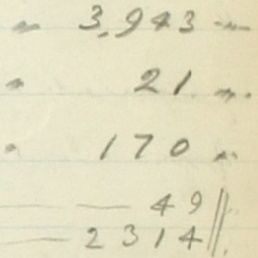 " 3,943 "
" 21 "
" 170 "
— 49
— 2314